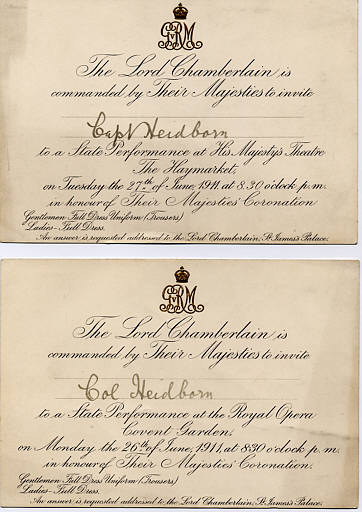 The Lord Chamberlain is
commanded by Their Majesties to invite
Capt Heidborn
to a State Performance at His Majesty's Theatre
The Haymarket,
on Tuesday the 27th of June, 1911, at 8.30 o'clock p.m.
in honour of Their Majesties' Coronation
Gentlemen-Full Dress Uniform (Trousers)
Ladies-Full Dress.
An answer is requested addressed to the Lord Chamberlain, St James's Palace.
The Lord Chamberlain is
commanded by Their Majesties to invite
Col Heidborn
to a State Performance at the Royal Opera
Covent Garden,
on Monday the 26th of June, 1911, at 8.30 o'clock p.m.
in honour of Their Majesties' Coronation.
Gentlemen-Full Dress Uniform (Trousers)
Ladies-Full Dress.
An answer is requested addressed to the Lord Chamberlain, St James's Palace.